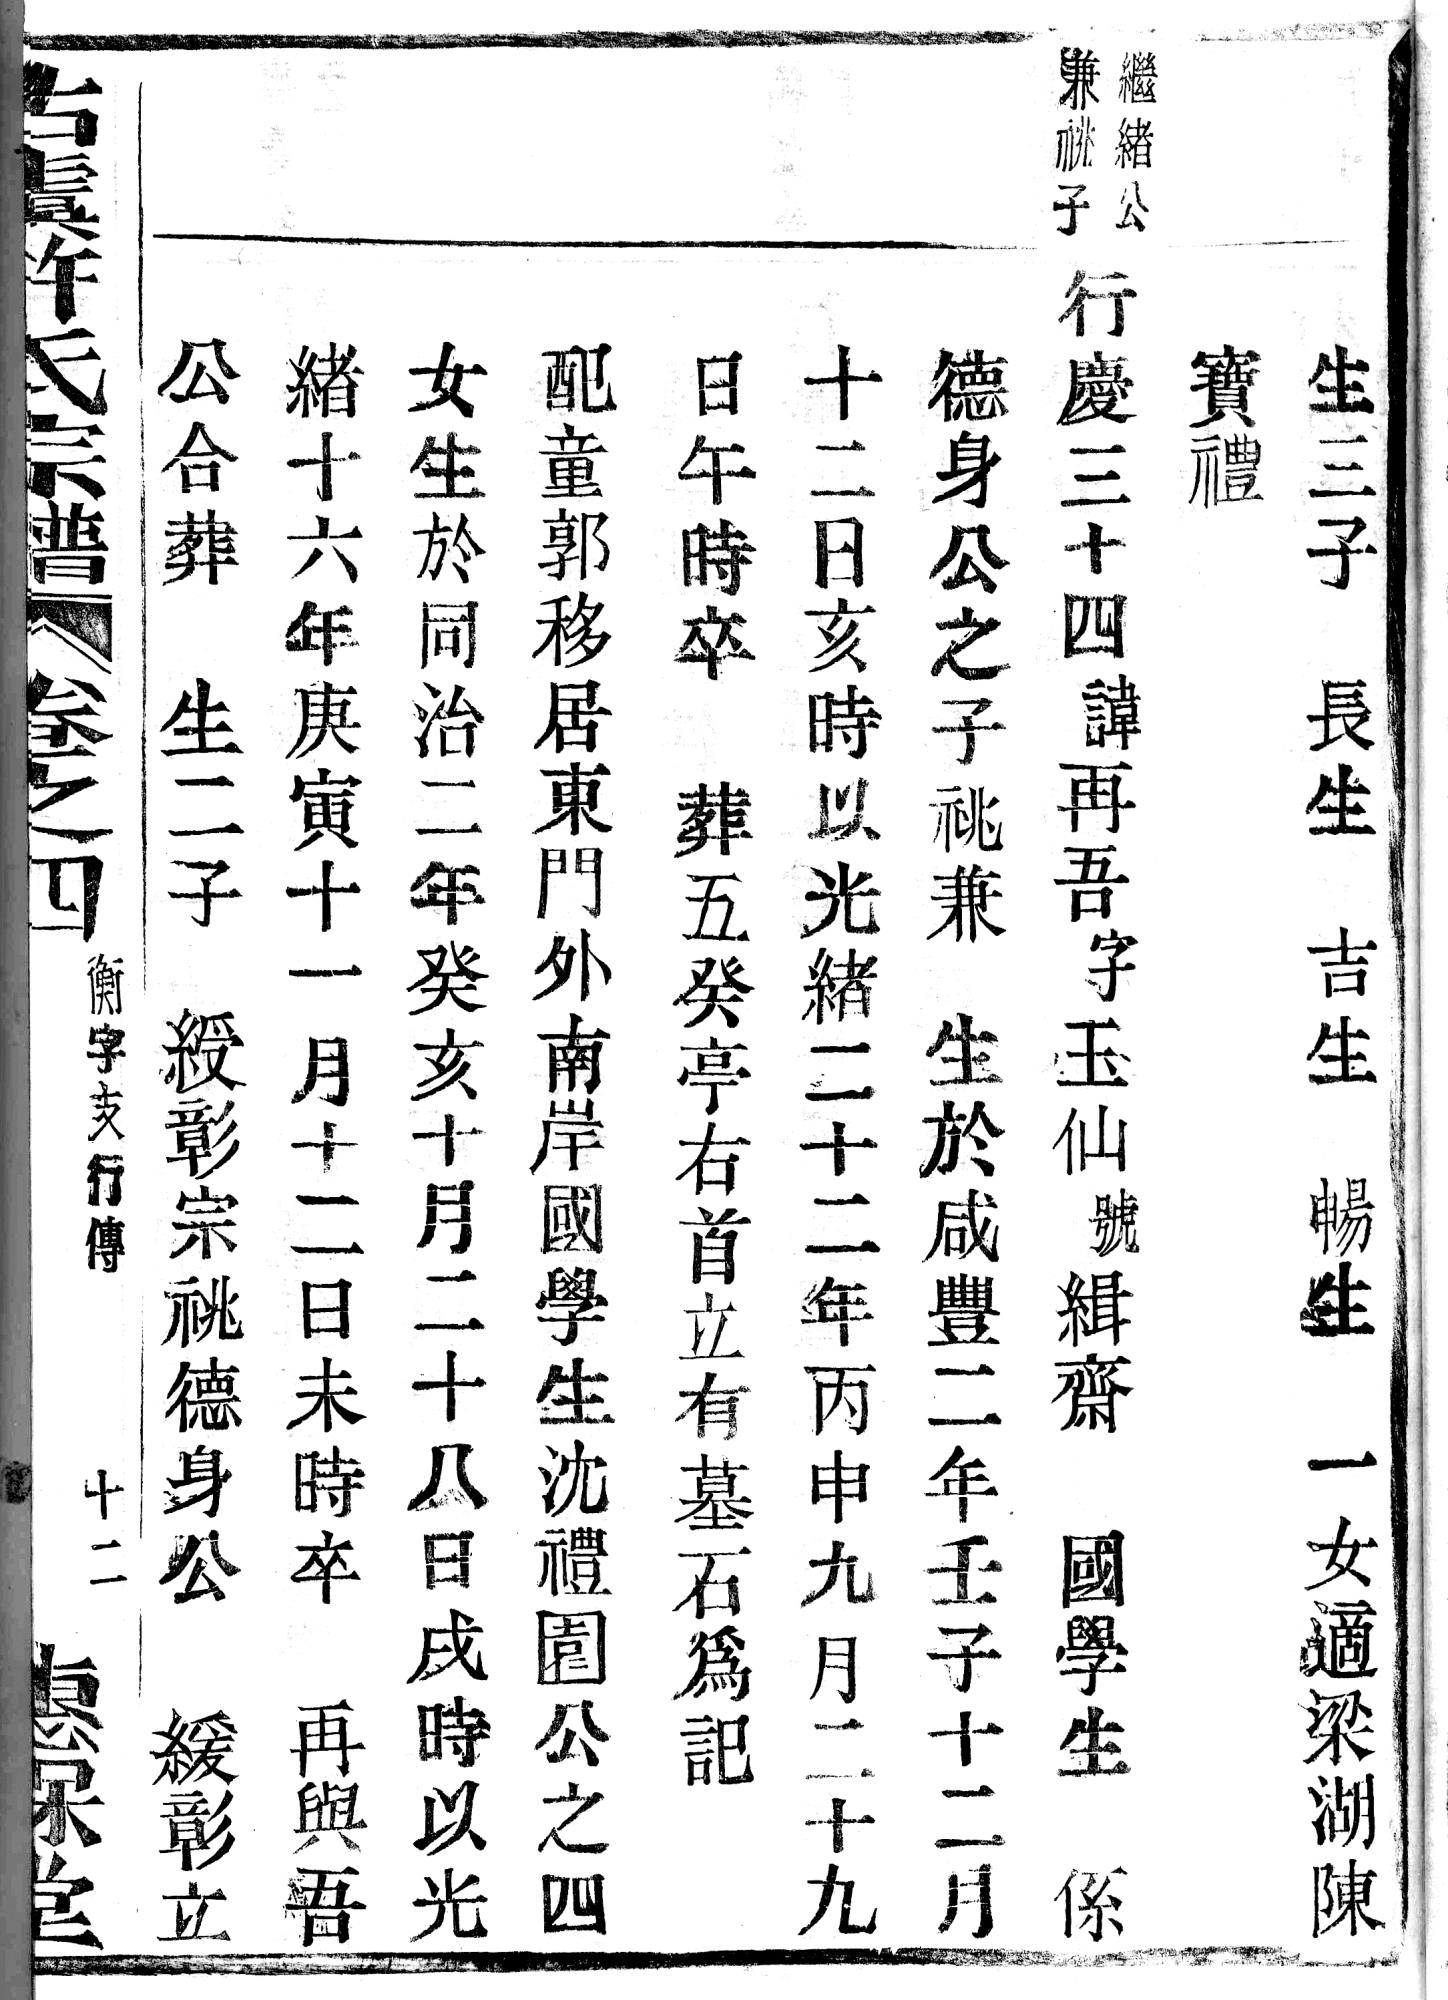 生三子　長生　吉生　暢生　一女適梁湖陳
寶禮
繼緒公
兼祧子
行慶三十四諱再吾字玉仙號緝齋　國學生　係
德身公之子祧兼　生於咸豐二年壬子十二月
十二日亥時以光緒二十二年丙申九月二十九
日午時卒　葬五癸亭右首立有墓石爲記
配童郭移居東門外南岸國學生沈禮園公之四
女生於同治二年癸亥十月二十八日戌時以光
緒十六年庚寅十一月十二日未時卒　再與吾
公合葬　生二子　綬彰宗祧德身公　緩彰立
古虞許氏宗譜　卷之四
衡字支行傳
十二
惠深堂